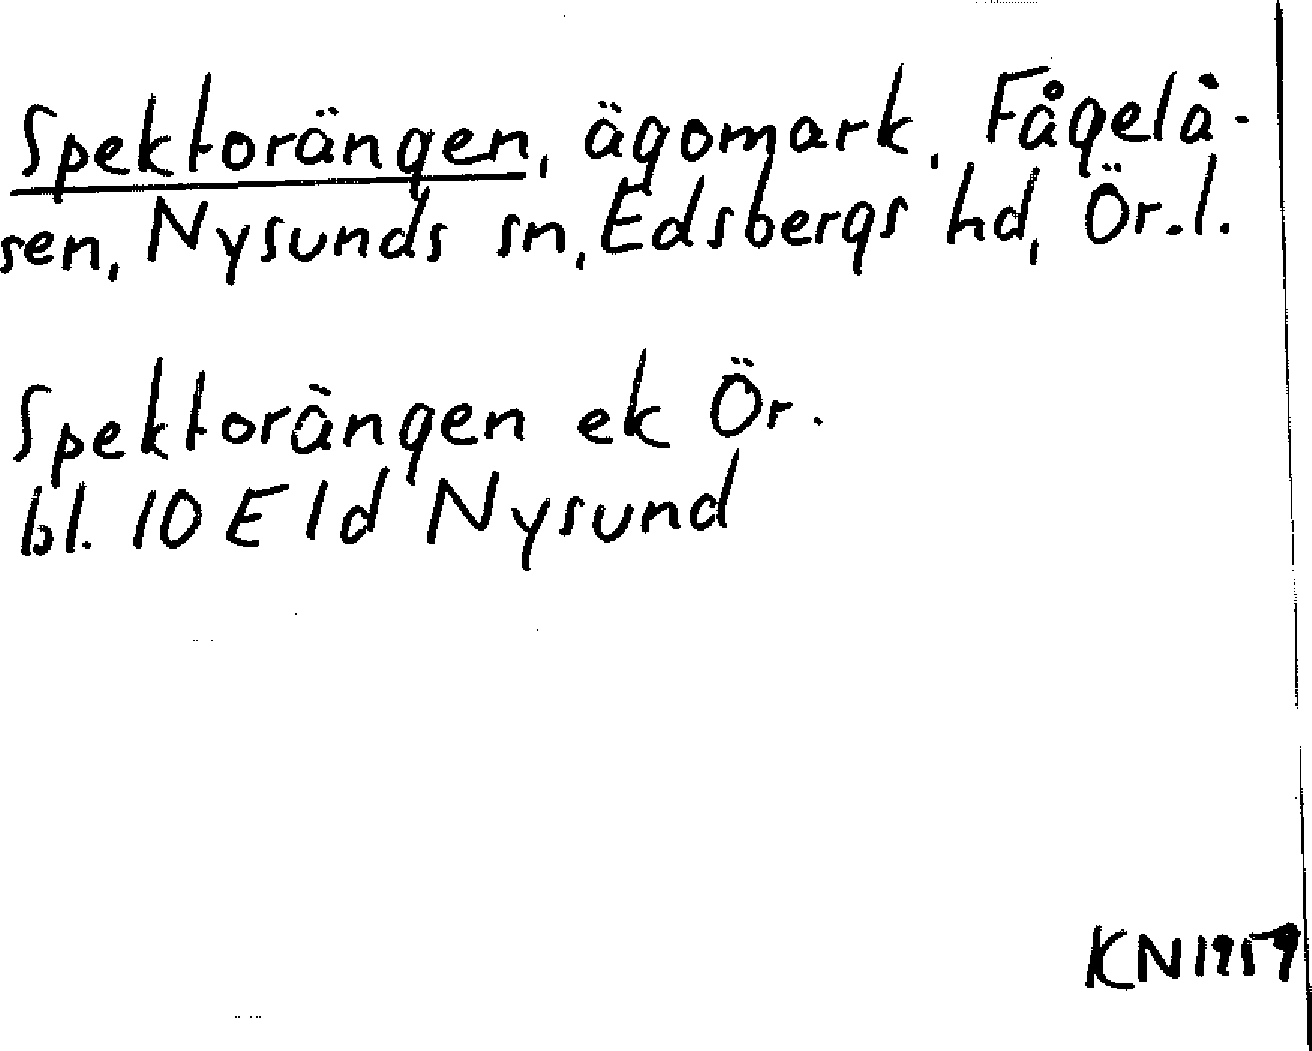 Spektorängen, ägomark, Fågelå-
sen, Nysunds sn, Edsbergs hd, Ör.l.
Spektorängen ek Ör.
bl. 10 E 1d Nysund
KN 1959